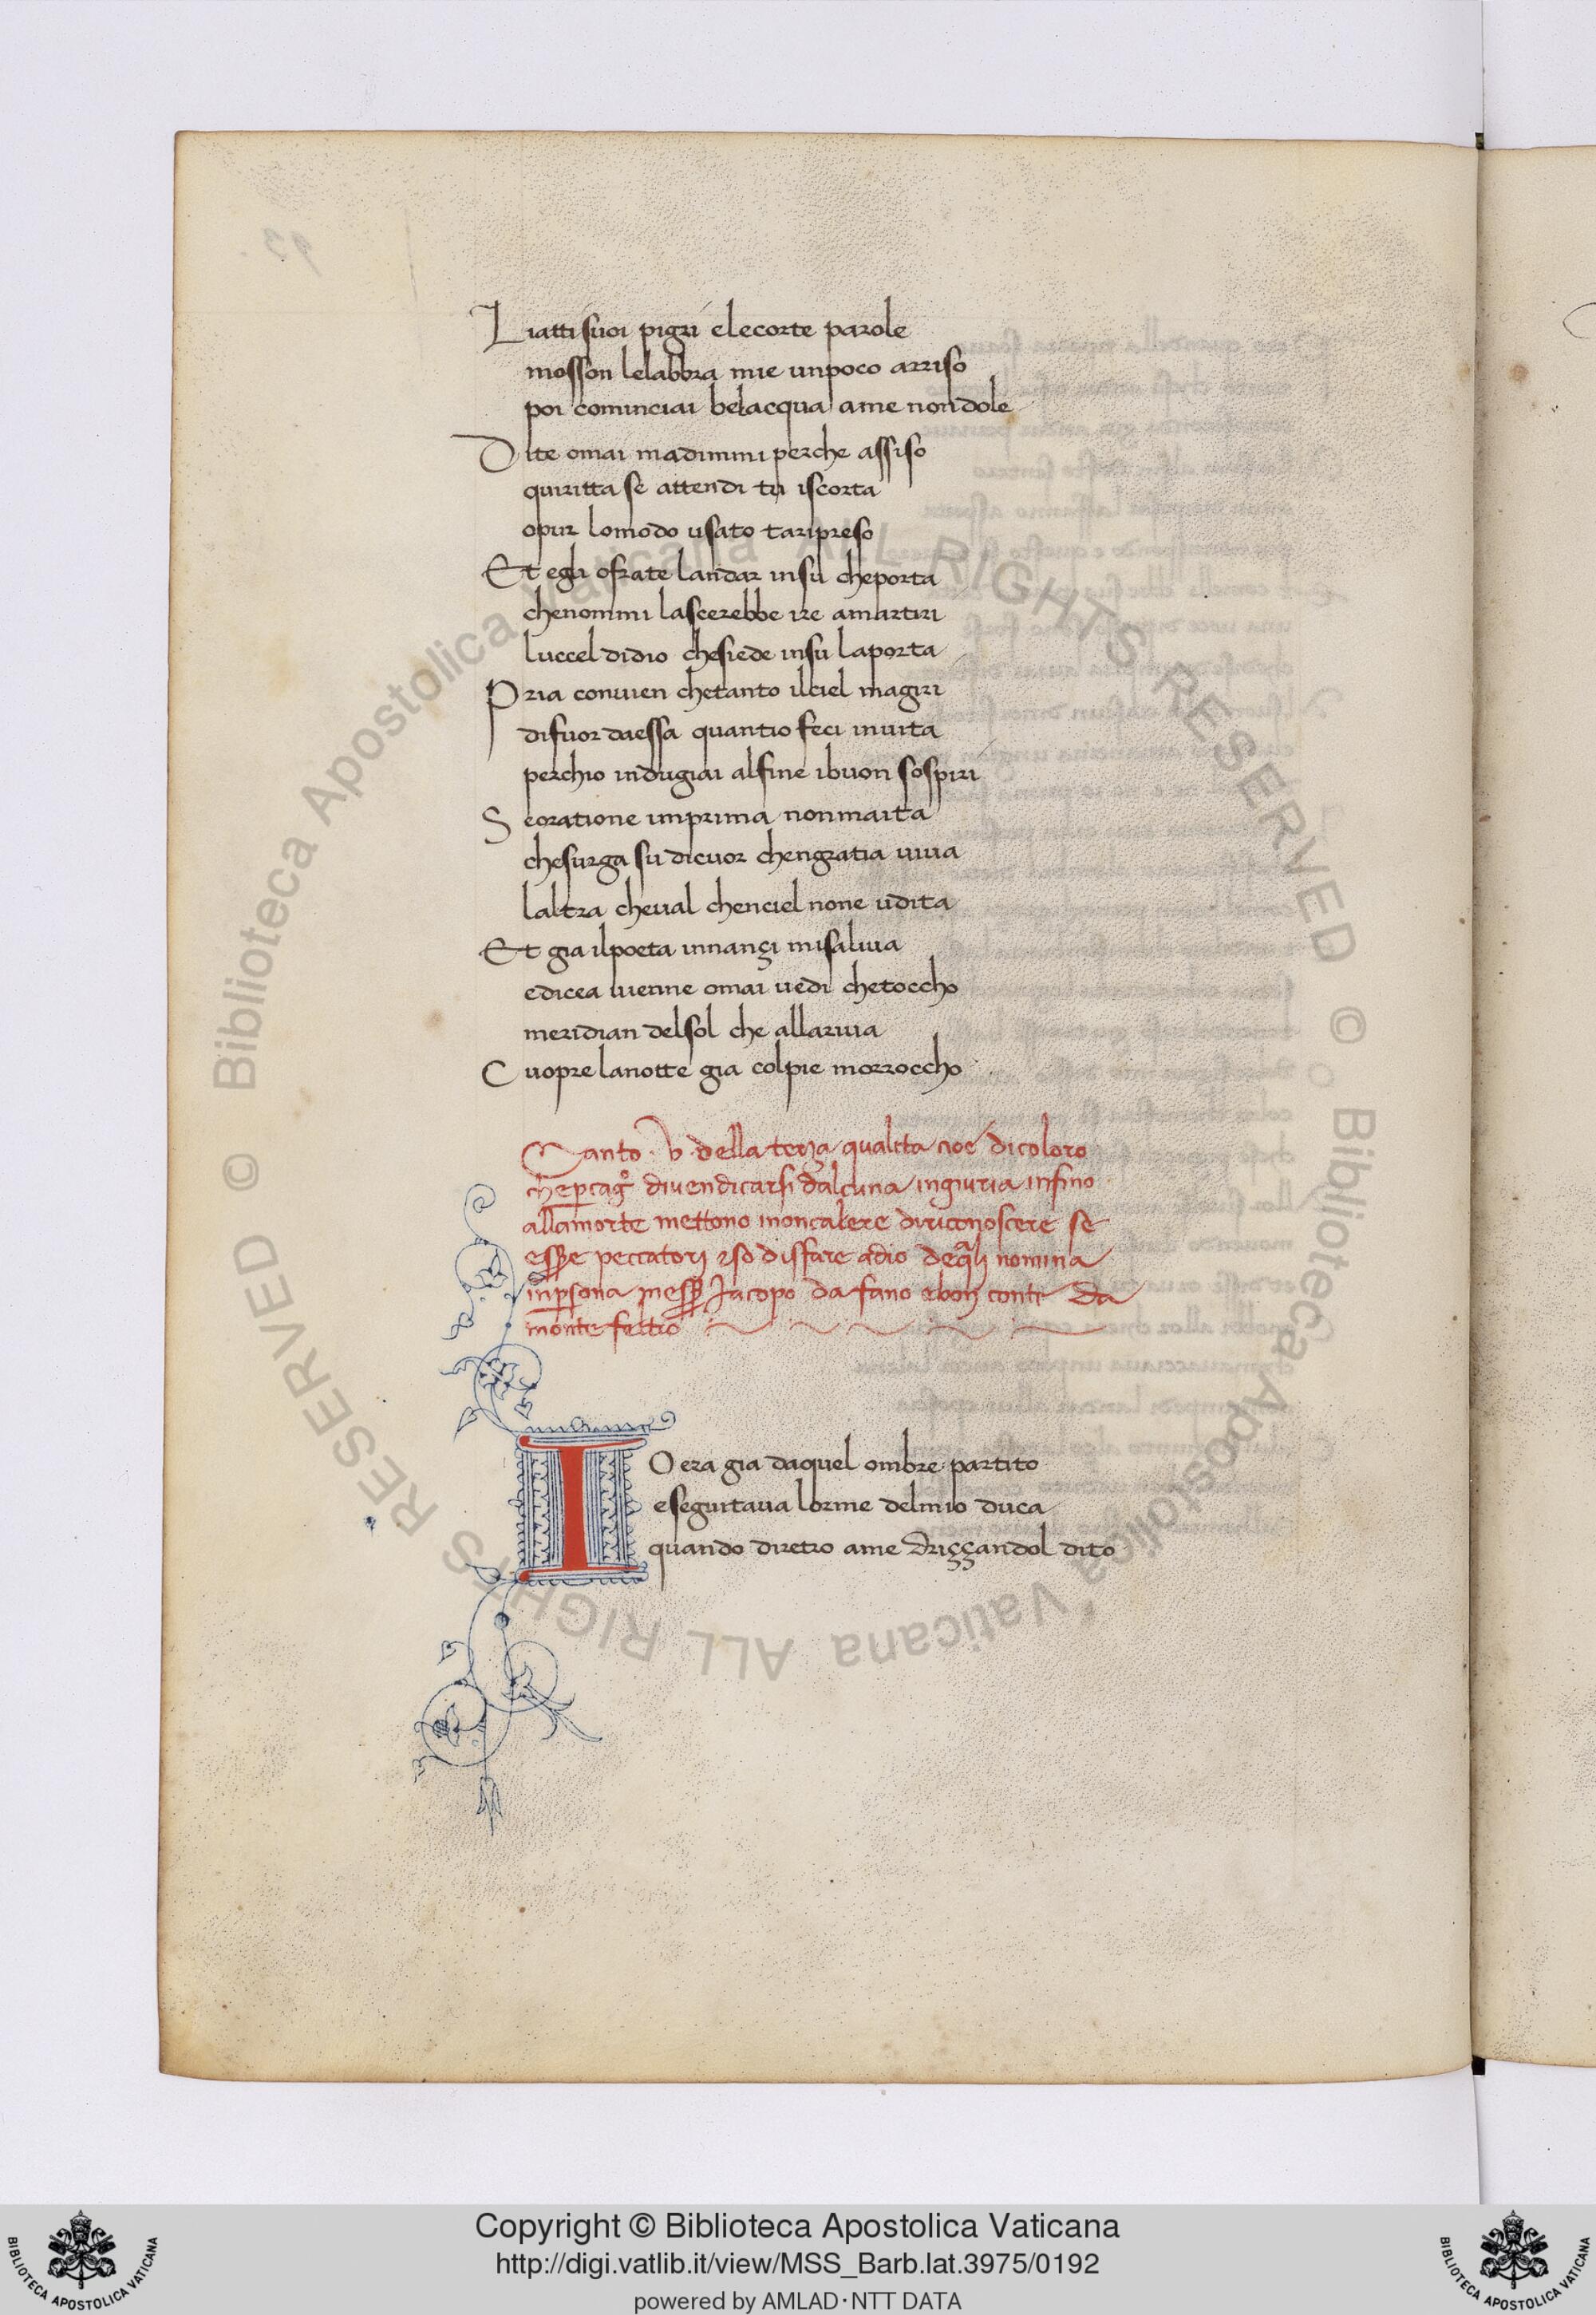 Liatti suoi pigri elecorte parole
mosson lelabbra mie unpoco arriso
poi cominciai belacqua ame nondole
Dite omai madimmi perche assiso
quiritta se attendi tu iscorta
opur lomodo usato taripreso
Et egli ofrate landar insu cheporta
chenommi lascerebbe ire amartiri
luccel didio chesiede insu laporta
Pria convien chetanto ilciel magiri
difuor daessa quantio feci invita
perchio indugiai alfine ibuon sospiri
Seoratione imprima nonmaita
chesurga su dicuor chengratia viva
laltra cheval chenciel none udita
Et gia ilpoeta innançi misaliva
edicea vienne omai vedi chetoccho
meridian delsol che allariva
Cuopre lanotte gia colpie morroccho
Canto . v . della terza qualita cioe dicoloro
divendicarsi dalcuna ingiuria infino
allamorte mettono inoncalere diriconoscere se
peccatori disfare adio nomina
Jacopo da fano conte da
monte feltro
IO era gia daquel ombre partito
eseguitava lorme delmio duca
quando diretro ame driççandol dito
Copyright © Biblioteca Apostolica Vaticana
http://digi.vatlib.it/view/MSS_Barb.lat.3975/0192
powered by AMLAD·NTT DATA
BIBLIOTECA APOSTOLICA VATICANA
BIBLIOTECA APOSTOLICA VATICANA
© Biblioteca Apostolica Vaticana ALL RIGHTS RESERVED
© Biblioteca Apostolica Vaticana ALL RIGHTS RESERVED